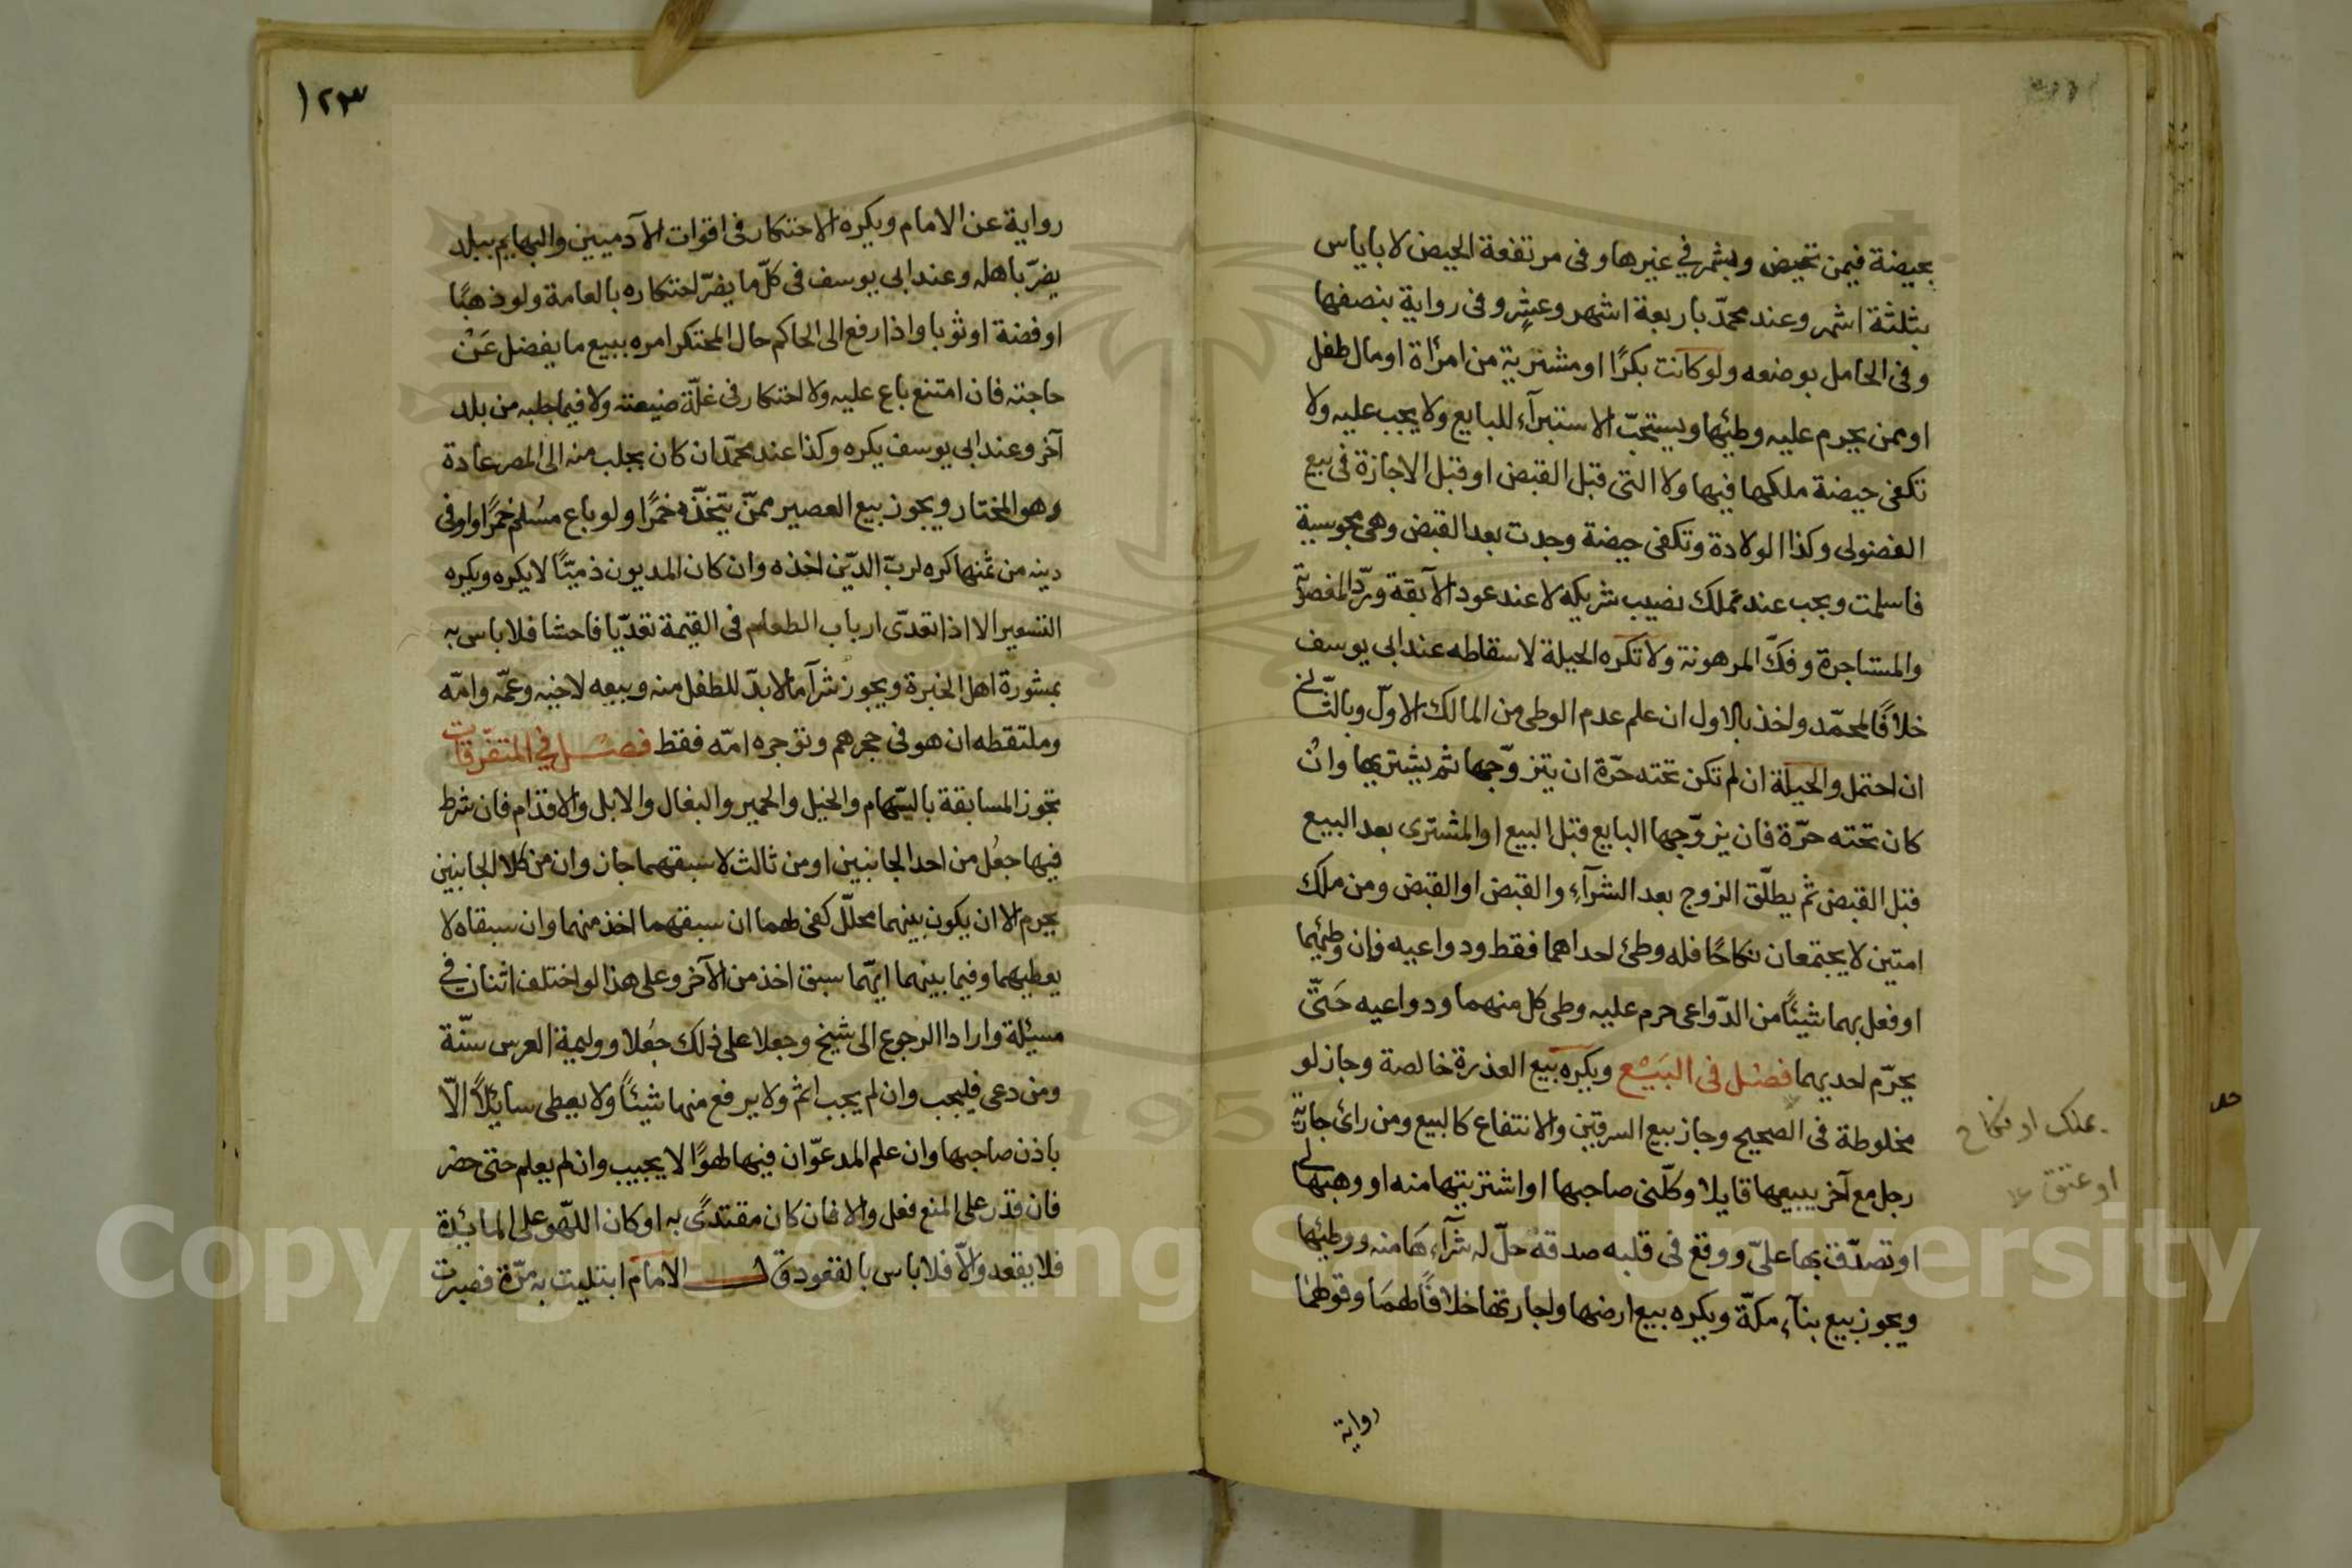 بحيضة فيمن تحيض وبشهر في غيرها وفى مرتفعة الحيض لا باياس
بثلثة اشهر وعند محمّد باربعة اشهر وعشر وفى رواية بنصفها
وفى الحامل بوضعه ولو كانت بكرًا او مشترية من امرأة او مال طفل
او ممن يحرم عليه وطئها ويستحبّ الاستبرآء للبايع ولا يجب عليه ولا
تكفى حيضة ملكها فيها ولا التى قبل القبض او قبل الاجازة فى بيع
الفضولى وكذا الولادة وتكفى حيضة وجدت بعد القبض وهى مجوسية
فاسلمت ويجب عند تملك نصيب شريكه لا عند عود الآبقة وردّ المغصوبة
والمستاجرة وفكّ المرهونة ولا تكره الحيلة لاسقاطه عند ابى يوسف
خلافًا لمحمّد واخذ بالاول ان علم عدم الوطى من المالك الاوّل وبالثّانى
ان احتمل والحيلة ان لم تكن تحته حرّة ان يتزوّجها ثم يشتريها وان
كان تحته حرّة فان يزوّجها البايع قبل البيع او المشترى بعد البيع
قبل القبض ثم يطلّق الزوج بعد الشرآء والقبض او القبض ومن ملك
امتين لا يجتمعان نكاحًا فله وطئ احداهما فقط ودواعيه فان وطئهما
او فعل بهما شيئًا من الدّواعى حرم عليه وطى كل منهما ودواعيه حَتّى
يحرّم احديهما فصل فى البَيْع ويكره بيع العذرة خالصة وجاز لو
مخلوطة فى الصحيح وجاز بيع السرقين والانتفاع كالبيع ومن رائ جارية
رجل مع آخر يبيعها قايلا وكلّنى صاحبها او اشتريتها منه او وهبها لى
او تصدّق بها علىّ ووقع فى قلبه صدقه حلّ له شرآءهَا منه ووطئها
ويجوز بيع بنآء مكّة ويكره بيع ارضها واجارتها خلافًا لهمَا وقولهما
رواية
بملك او نكاح
او عتق
١٢٣
رواية عن الامام ويكره الاحتكار فى اقوات الآدميين والبهايم ببلد
يضرّ باهله وعند ابى يوسف فى كلّ ما يضرّ احتكاره بالعامة ولو ذهبًا
او فضة او ثوبا واذا رفع الى الحاكم حال المحتكر امره ببيع ما يفضل عَنْ
حاجته فان امتنع باع عليه ولا احتكار فى غلّة ضيعته ولا فيما جلبه من بلد
آخر وعند ابى يوسف يكره وكذا عند محمّد ان كان يجلب منه الى المصر عادة
وهو المختار ويجوز بيع العصير ممنّ يتخذّه خمرًا ولو باع مسُلم خمرًا واوفى
دينه من ثمنها كره لربّ الدّين اخذه وان كان المديون ذميّا لا يكره ويكره
التسعير الا اذا تعدّى ارباب الطعام فى القيمة تعدّيا فاحشا فلا باس به
بمشورة اهل الخبرة ويجوز شرآ ما لا بدّ للطفل منه وبيعه لاخيه وعمّه وامّه
وملتقطه ان هو فى حجرهم وتؤجره امّه فقط فصل في المتفّرقات
تجوز المسابقة بالسّهام والخيل والحمير والبغال والابل والاقدام فان شرط
فيها جعُل من احد الجانبين او من ثالث لاسبقهما جاز وان من كلا الجانبين
يحرم الا ان يكون بينهما محلّل كفى لهما ان سبقهما اخذ منهما وان سبقاه لا
يعطيهما وفيما بينهما ايّهما سبق اخذ من الآخر وعلى هذا لو اختلف اثنان في
مسئلة وارادا الرجوع الى شيخ وجعلا على ذلك جُعلا ووليمة العرس سنّة
ومن دعى فليجب وان لم يجب اثم ولا يرفع منها شيئاً ولا يعطى سايلًا الّا
باذن صاحبها وان علم المدعوّ ان فيها لهوًا لا يجيب وان لم يعلم حتى حضر
فان قدر على المنع فعل والا فان كان مقتدىً به او كان اللّهو على المائدة
فلا يقعد والّا فلا باس بالقعود قال الامام ابتليت به مرّة فصبرت